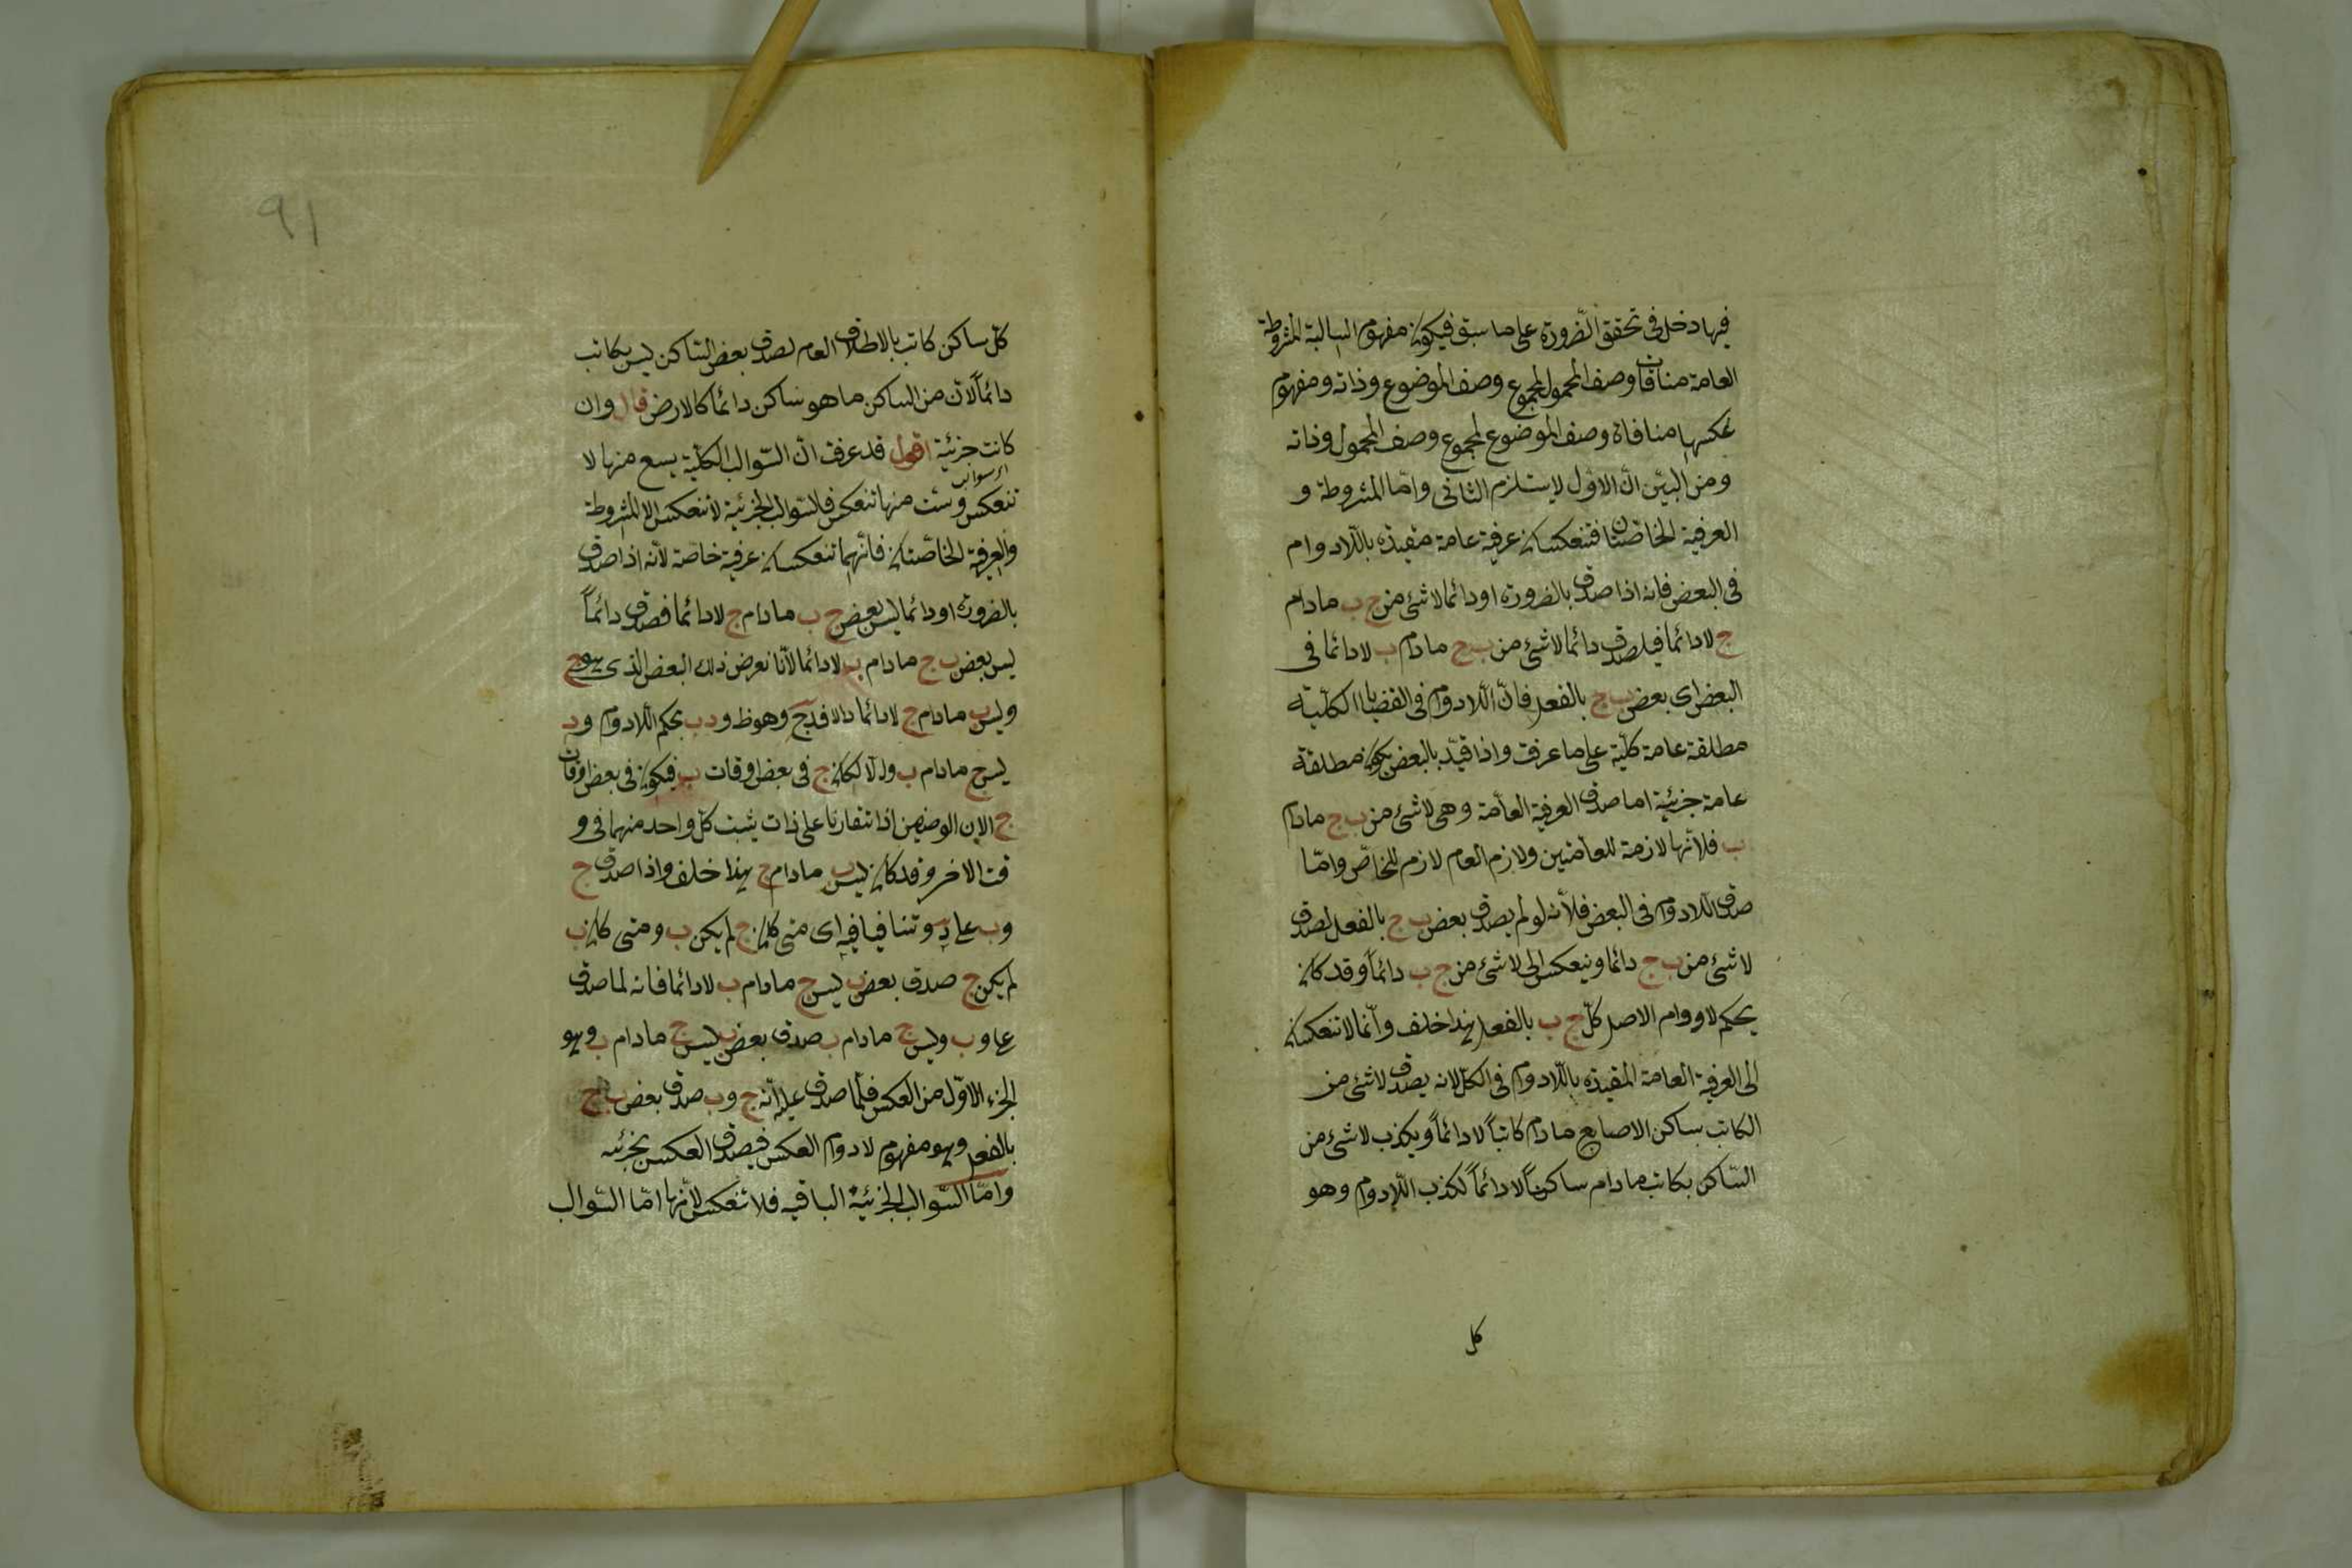 فيها دخل فى تحقق الضّرورة على ما سبق فيكون مفهوم السالبة المشروطة
العامة منافات وصف المحمول لمجموع وصف الموضوع وذاته ومفهوم
عكسها منافاة وصف الموضوع لمجموع وصف المحمول وذاته
ومن البيّن انّ الاوّل لا يستلزم الثانى وامّا المشروطة و
العرفية الخاصّتان فتنعكسان عرفية عامة مقيدة باللّادوام
فى البعض فانه اذا صدق بالضرورة او دائما لا شئ من ج ب مادام
ج لا دائما فيلصدق دائما لا شئ من ب ج مادام ب لا دائما فى
البعض اى بعض ب ج بالفعل فانّ اللّادوام فى القضايا الكلّية
مطلقة عامة كلّية على ما عرفت واذا قيّد بالبعض يكون مطلقة
عامة جزئية اما صدق العرفية العامّة وهى لا شئ من ب ج مادام
ب فلأنّها لازمة للعامّتين ولازم العام لازم للخاصّ وامّا
صدق اللّادوام فى البعض فلأنّه لو لم يصدق بعض ب ج بالفعل لصدق
لا شئ من ب ج دائما وينعكس الى لا شئ من ج ب دائماً وقد كان
بحكم لا دوام الاصل كلّ ج ب بالفعل هذا خلف وانّما لا تنعكسان
الى العرفية العامة المقيدة باللّادوام فى الكلّ لانه يصدق لا شئ من
الكاتب بساكن الاصابع مادام كاتباً لا دائماً ويكذب لا شئ من
السّاكن بكاتب مادام ساكناً لا دائماً لكذب اللّادوام وهو
كل
٩١
كلّ ساكن كاتب بالاطلاق العام لصدق بعض السّاكن ليس بكاتب
دائماً لانّ من الساكن ما هو ساكن دائما كالارض قال وان
كانت جزئية اقول قد عرفت انّ السّوالب الكلّية سبع منها لا
تنعكس وست منها تنعكس فالسّوالب الجزئية لا تنعكس الا المشروطة
والعرفية الخاصّتان فانّهما تنعكسان عرفية خاصّة لأنه اذا صدق
بالضرورة او دائما ليس بعض ج ب مادام ج لا دائما فصدق دائماً
ليس بعض ب ج مادام ب لا دائما لأنّا نعرض ذلك البعض الذى هو ج
وليس ب مادام ج لا دائما دالا فدج وهو ظ ود ب بحكم اللّادوام ود
ليس ج مادام ب والّا لكان ج فى بعض اوقات ب فيكون فى بعض اوقات
ج لان الوصفين اذا تقارنا على ذات يثبت كلّ واحد منهما فى و
قت الاخر وقد كان ليس ب مادام ج هذا خلف واذا صدق ج
وب على د وتنافيا فيه اى متى كان ج لم يكن ب ومتى كان ب
لم يكن ج صدق بعض ب ليس ج مادام ب لا دائما فانه لما صدق
على د ب وليس ج مادام ب صدق بعض ب ليس ج مادام ب وهو
الجزء الاوّل من العكس فلمّا صدق عليه انّه ج وب صدق بعض ب ج
بالفعل وهو مفهوم لا دوام العكس فيصدق العكس بجزئيه
وامّا السّوالب الجزئية الباقيه فلا تنعكس لأنّها امّا السّوالب